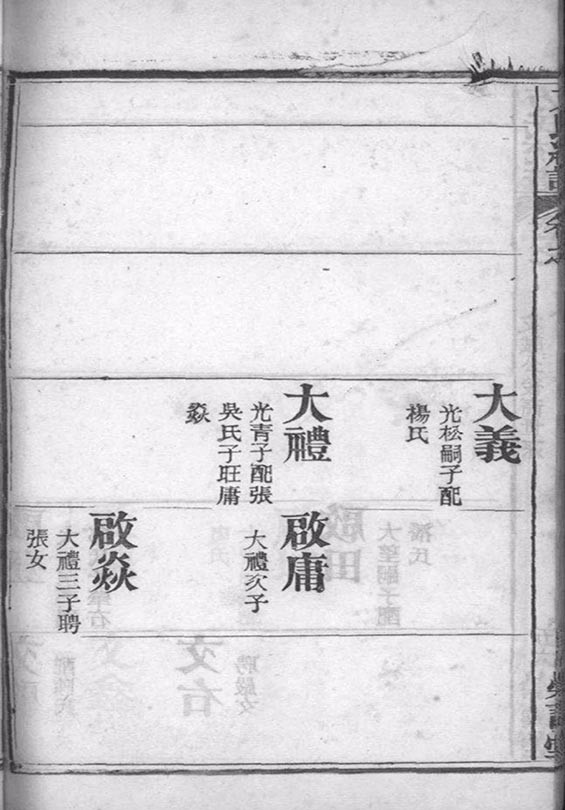 大義
光松嗣子配
楊氏
大禮
光青子配張
吳氏子旺庸
焱
啟庸
大禮次子
啟焱
大禮三子聘
張女